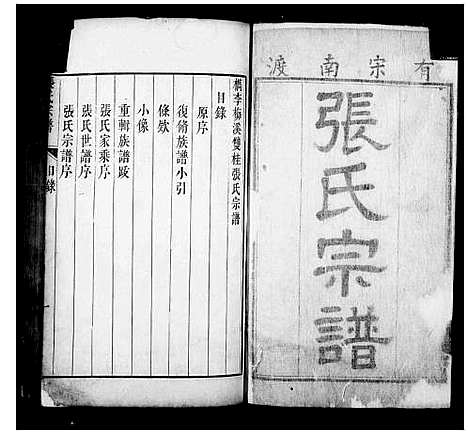 有宋南渡
張氏宗譜
檇李梅溪雙桂張氏宗譜
目錄
原序
復脩族譜小引
條欵
小像
重輯族譜跋
張氏家乘序
張氏世譜序
張氏宗譜序
目錄